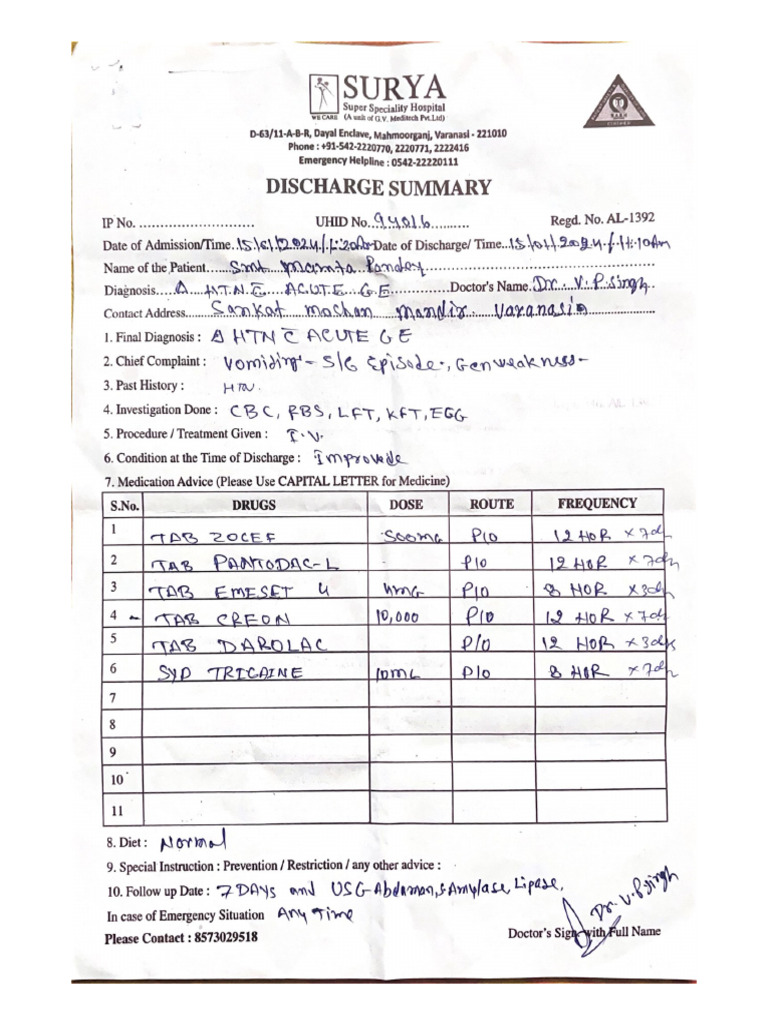 SURYA
Super Speciality Hospital
WE CARE (A unit of G.V. Meditech Pvt.Ltd)
D-63/11-A-B-R, Dayal Enclave, Mahmoorganj, Varanasi - 221010
Phone : +91-542-2220770, 2220771, 2222416
Emergency Helpline : 0542-22220111
DISCHARGE SUMMARY
IP No. ............................ UHID No. 94016 Regd. No. AL-1392
Date of Admission/Time. 15/01/2024/1:20 Date of Discharge/ Time... 15/01/2024/11:10Am
Name of the Patient...... Smt Mamta Pandey
Diagnosis..... Δ HTN C ACUTE G E Doctor's Name. Dr. V.P.Singh
Contact Address. Sankat mochan mandir varanasi
1. Final Diagnosis : Δ HTN C ACUTE G E
2. Chief Complaint : Vomiding - 5/6 Episode, Gen weakness-
3. Past History : HTN.
4. Investigation Done : CBC, RBS, LFT, KFT, EGG
5. Procedure / Treatment Given : I.V.
6. Condition at the Time of Discharge : Improvede
7. Medication Advice (Please Use CAPITAL LETTER for Medicine)
S.No. DRUGS DOSE ROUTE FREQUENCY
1 TAB ZOCEF 500MG P/O 12 HOR x 7
2 TAB PANTODAC-L P/O 12 HOR x 7
3 TAB EMESET 4 4MG P/O 8 HOR x 3
4 TAB CREON 10,000 P/O 12 HOR x 7
5 TAB DAROLAC P/O 12 HOR x 3
6 SYP TRICAINE 10ML P/O 8 HOR x 7
7
8
9
10
11
8. Diet : Normal
9. Special Instruction : Prevention / Restriction / any other advice :
10. Follow up Date : 7 DAYS and USG-Abdoman, S Amylase Lipase,
In case of Emergency Situation Any Time
Dr. V.P.Singh
Please Contact : 8573029518 Doctor's Sign with Full Name